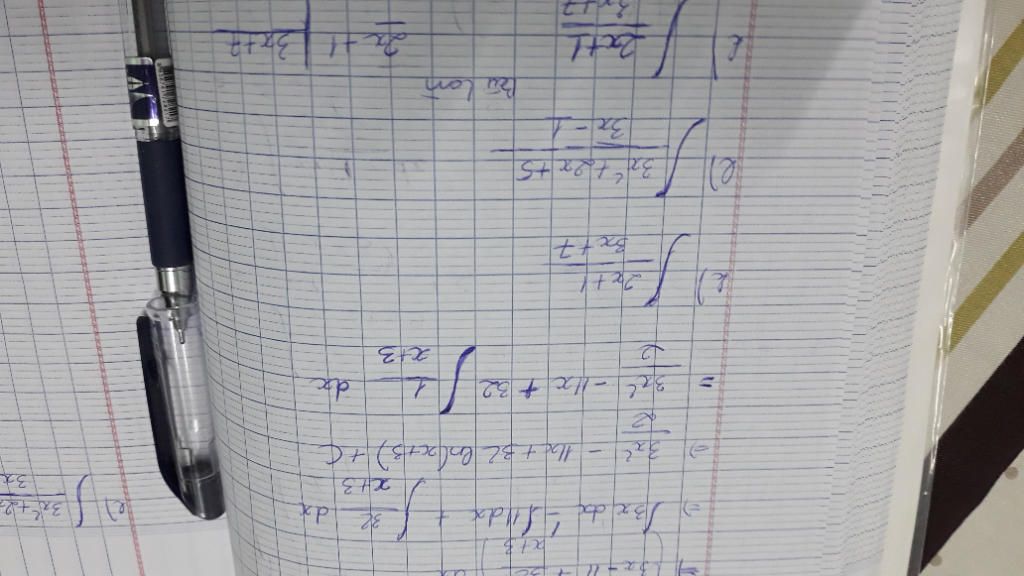 ⇒ (3x - 11 + 32/(x+3)) dx
⇒ ∫3x dx - ∫11dx + ∫ 32/(x+3) dx
⇒ 3x²/2 - 11x + 32 ln(x+3) + C
= 3x²/2 - 11x + 32 ∫ 1/(x+3) dx
k) ∫ (2x+1)/(3x+7)
l) ∫ (3x²+2x+5)/(3x-1)
k) ∫ (2x+1)/(3x+7) 2x+1 | 3x+7
l) ∫ 3x²+2x
3x